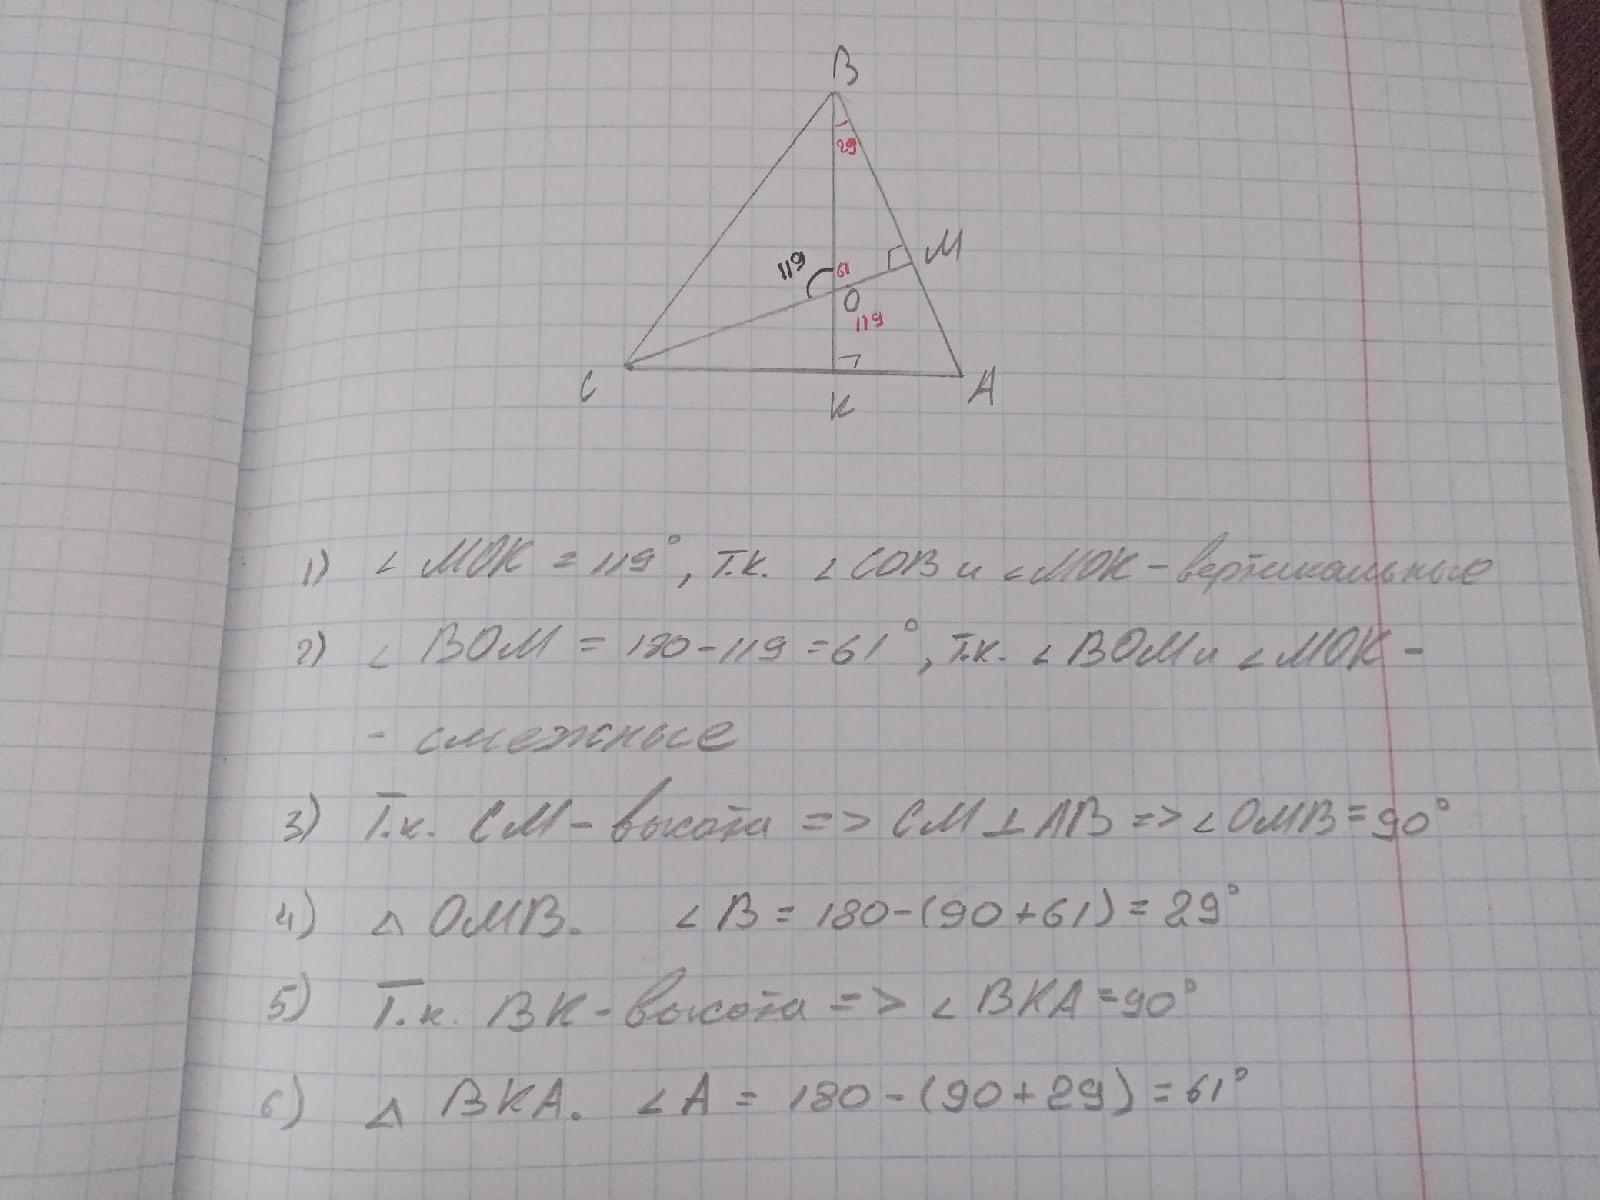 B
29
M
119
61
O
119
C
K
A
1) ∠ MOK = 119°, т.к. ∠COB и ∠MOK - вертикальные
2) ∠ BOM = 180-119 = 61°, т.к. ∠BOM и ∠MOK -
- смежные
3) Т.к. CM - высота => CM⊥AB => ∠OMB = 90°
4) △ OMB. ∠B = 180-(90+61) = 29°
5) Т.к. BK - высота => ∠BKA = 90°
6) △ BKA. ∠A = 180-(90+29) = 61°